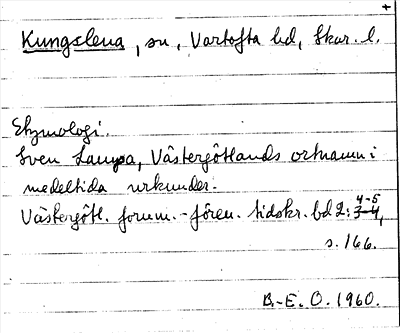 Kungslena, sn, Vartofta hd, Skar. l.
Etymologi.
Sven Lampa, Västergötlands ortnamn i
medeltida urkunder.
Västergötl. fornm.-fören. tidskr. bd 2: 4-5
s. 166.
B.-E. O. 1960.